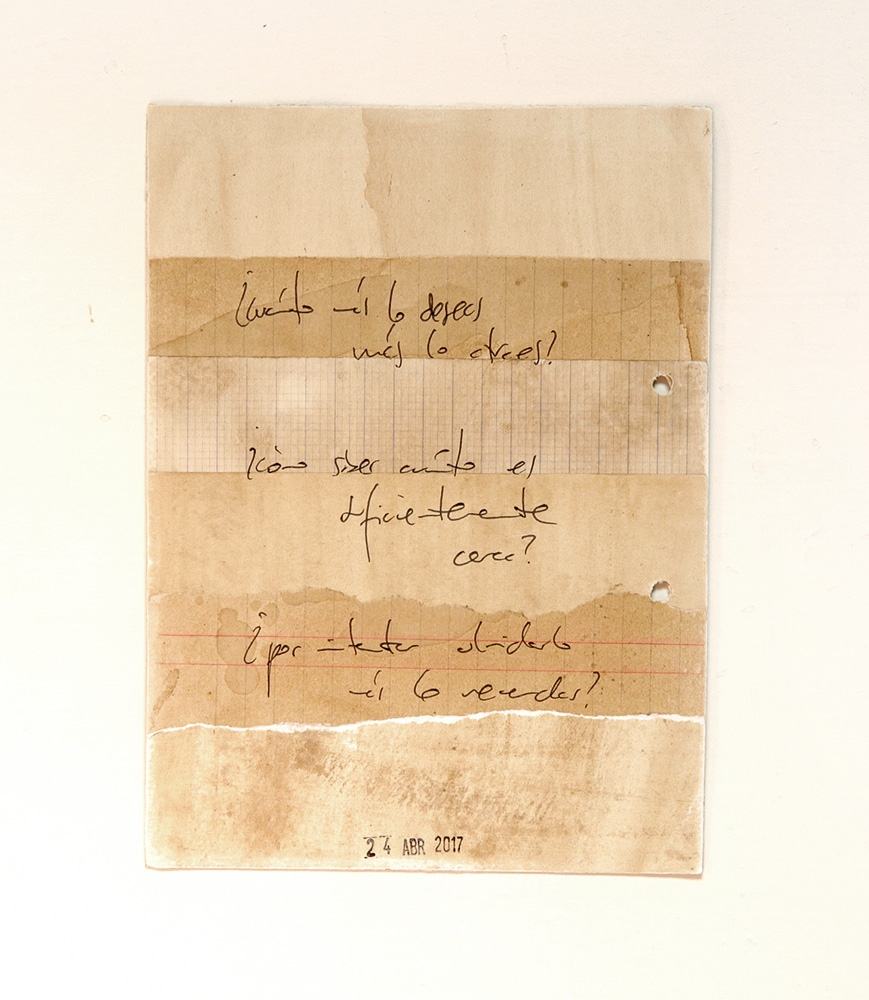 ¿Cuánto más lo deseas
más lo atraes?
¿Cómo saber cuánto es
suficientemente
cerca?
¿por intentar olvidarlo
más lo recuerdas?
24 ABR 2017